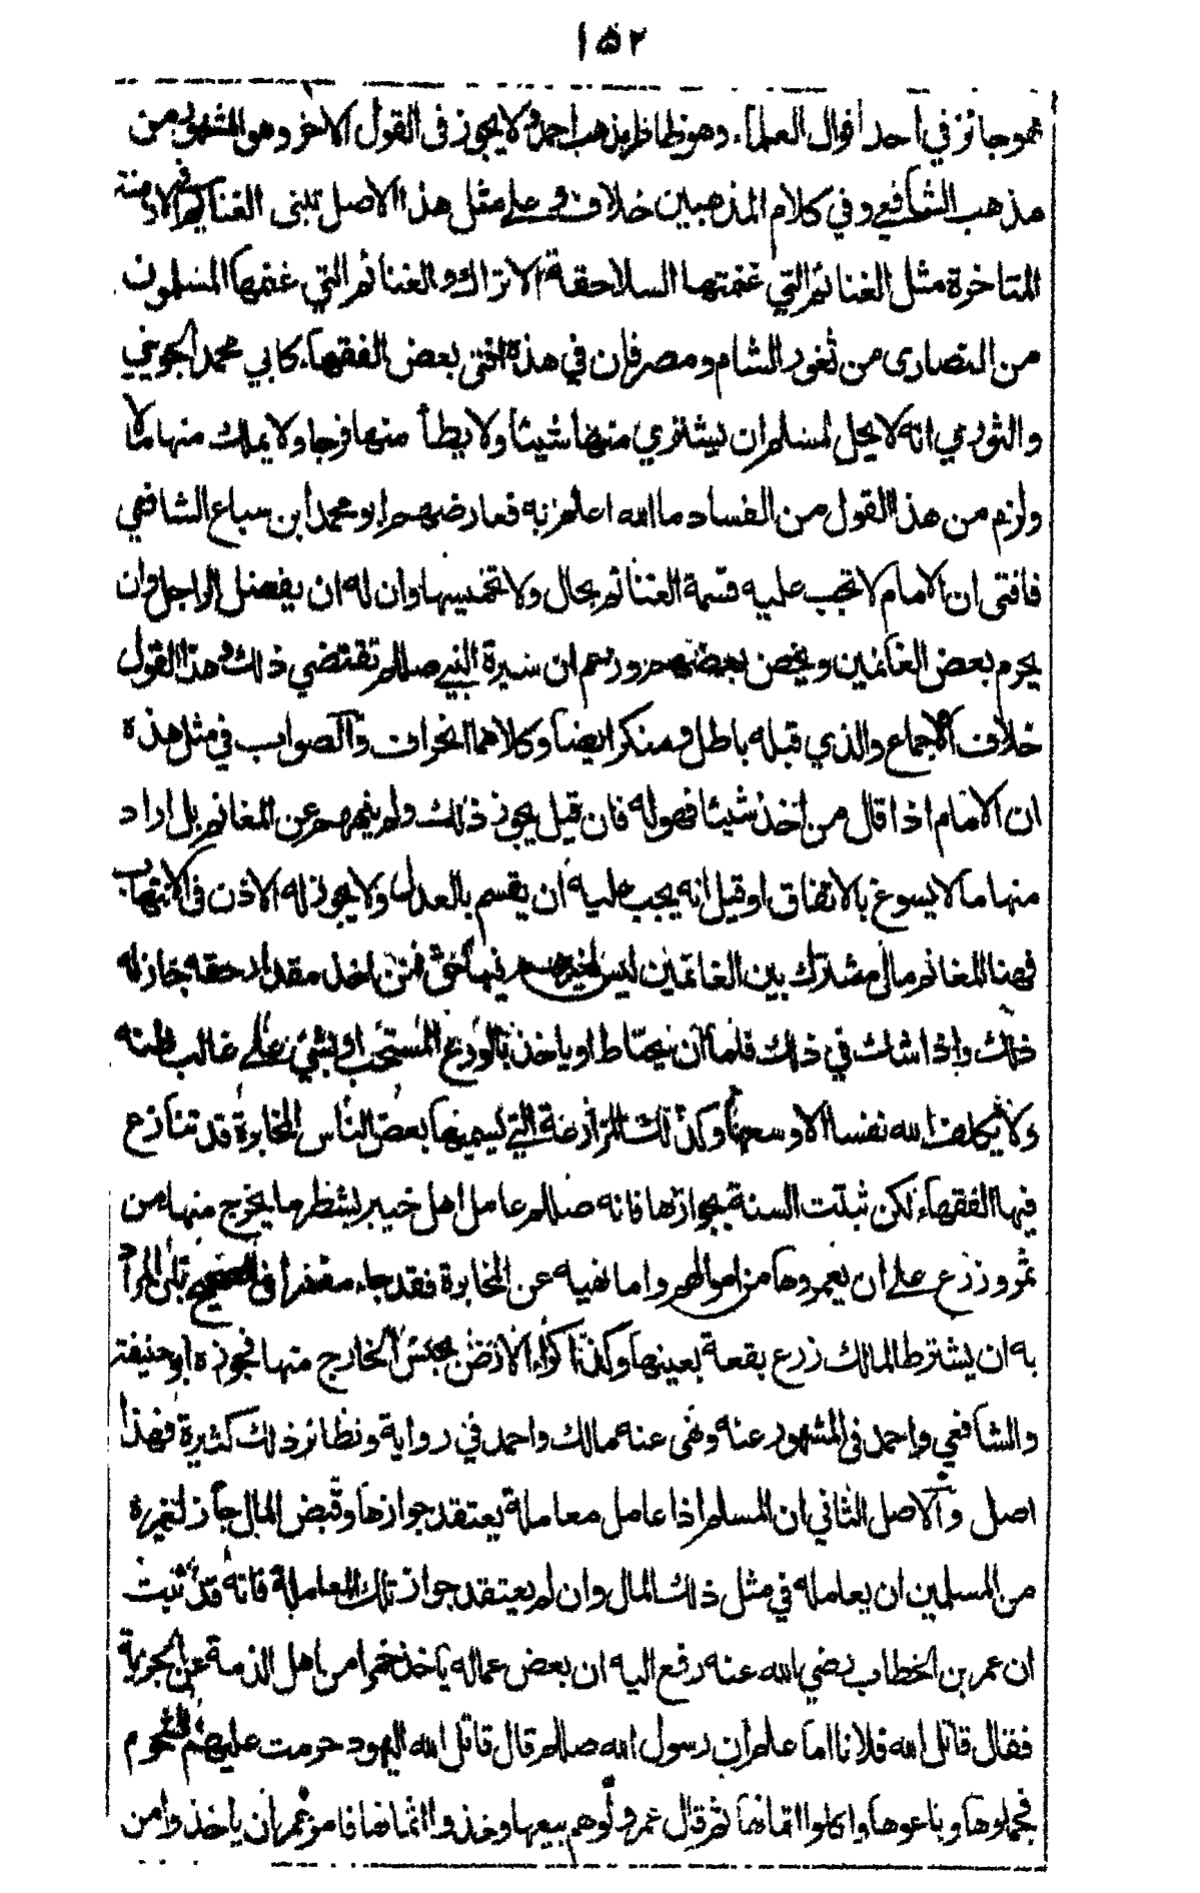 ١٥٢
فهو جائز في احد اقوال العلماء وهو ظاهر مذهب احمد ولا يجوز فى القول الاخر وهو المشهور من
مذهب الشافعي وفي كلام المذهبين خلاف وعلى مثل هذا الاصل تبنى الغنائم فى الازمنة
المتاخرة مثل الغنائم التي غنمتها السلاجقة الاتراك والغنائم التي غنمها المسلمون
من النصارى من ثغور الشام ومصر فإن في هذه افتى بعض الفقهاء كابي محمد الجويني
والنووي انه لا يحل لمسلم ان يشتري منها شيئا ولا يطأ منها فرجا ولا يملك منها مالا
ولزم من هذا القول من الفساد ما الله اعلم به فعارضهم ابو محمد ابن سباع الشافعي
فافتى ان الامام لا تجب عليه قسمة الغنائم بحال ولا تخميسها وان له ان يفضل الراجل وان
يحرم بعض الغانمين ويخص بعضهم وزعم ان سيرة النبي صلالم تقتضي ذلك وهذا القول
خلاف الاجماع والذي قبله باطل ومنكر ايضا وكلاهما انحراف والصواب في مثل هذه
ان الامام اذا قال من اخذ شيئا فهو له فان قيل يجوز ذلك ولم ينههم عن المغانم بل اراد
منها ما لا يسوغ بالاتفاق او قيل انه يجب عليه ان يقسم بالعدل ولا يجوز له الاذن فى الانتهاب
فهنا المغانم مال مشترك بين الغانمين ليس لغيرهم فيها حق فمن اخذ مقدار حقه جاز له
ذلك واذا شك في ذلك فلما ان يحتاط او ياخذ بالورع المستحب او يبني على غالب ظنه
ولا يكلف الله نفسا الا وسعها وكذلك المزارعة التي يسميها بعض الناس المخابرة قد تنازع
فيها الفقهاء لكن ثبتت السنة بجوازها فانه صلالم عامل اهل خيبر بشطر ما يخرج منها من
ثمر وزرع على ان يعمروها من اموالهم واما نهيه عن المخابرة فقد جاء مفسرا فى الصحيح بأن المراد
به ان يشترط المالك زرع بقعة بعينها وكذا كراء الارض بجنس الخارج منها فجوزه ابو حنيفة
والشافعي واحمد فى المشهور عنه ونهى عنه مالك واحمد في رواية ونظائر ذلك كثيرة فهذا
اصل والاصل الثاني ان المسلم اذا عامل معاملة يعتقد جوازها وقبض المال جاز لغيره
من المسلمين ان يعامله في مثل ذلك المال وان لم يعتقد جواز تلك المعاملة فانه قد ثبت
ان عمر بن الخطاب رضي الله عنه رفع اليه ان بعض عماله ياخذ خمرا من اهل الذمة عن الجزية
فقال قاتل الله فلانا اما علم ان رسول الله صلالم قال قاتل الله اليهود حرمت عليهم الشحوم
فجملوها وباعوها واكلوا اثمانها ثم قال عمر ولوهم بيعها وخذوا اثمانها فامر عمر ان ياخذوا من